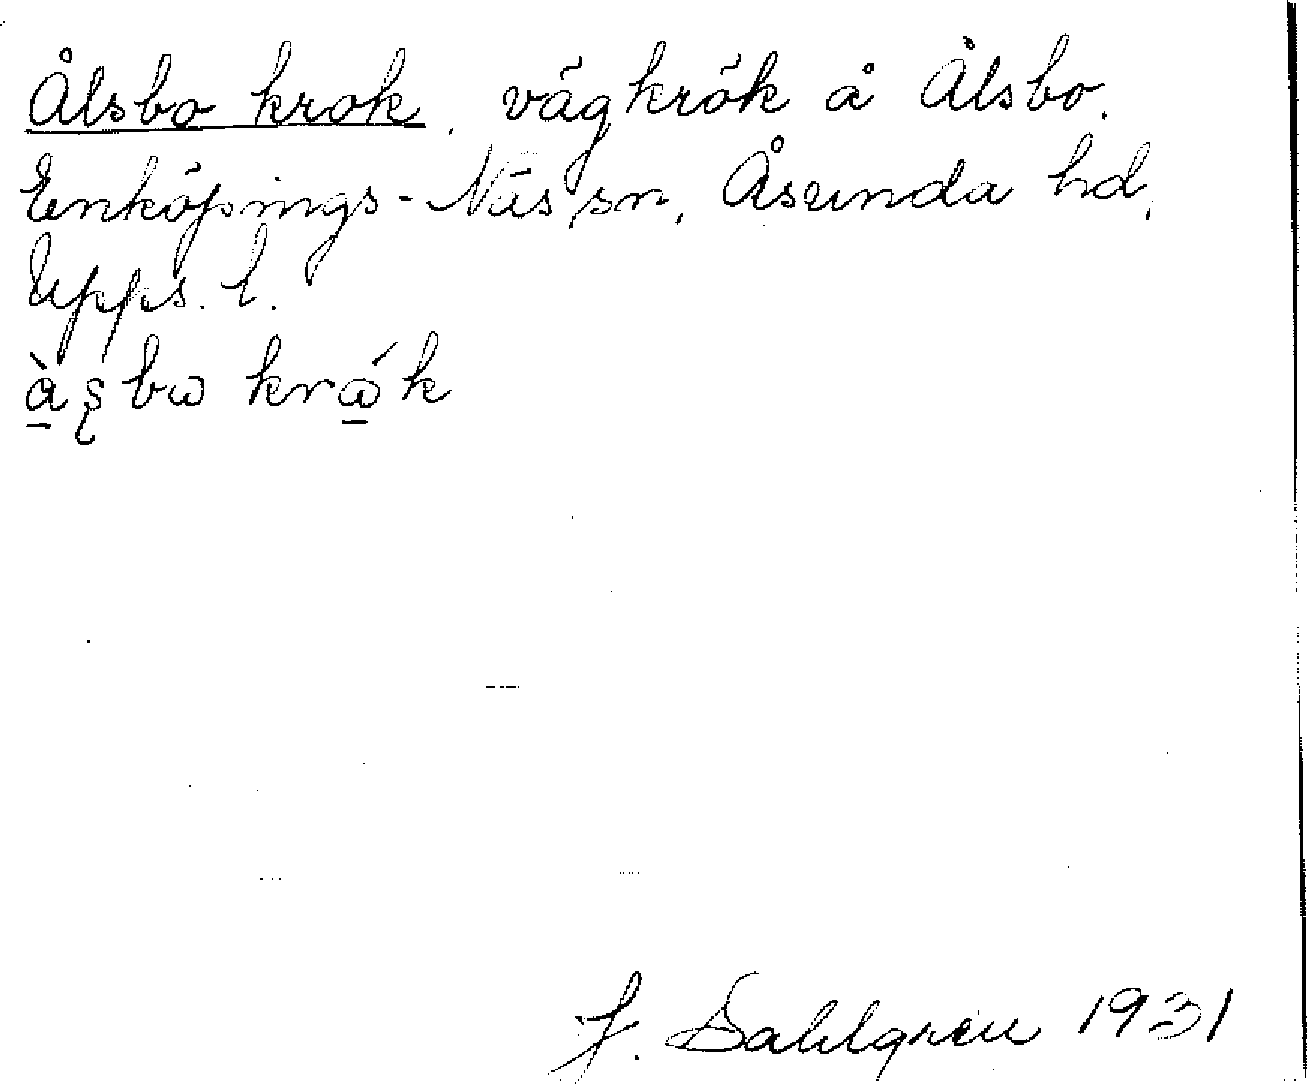 Ålsbo krok. vägkrök å Ålsbo.
Enköpings-Näs sn, Åsunda hd,
Upps. l.
à̱s̨bω krώ̱k
J. Sahlgren 1931